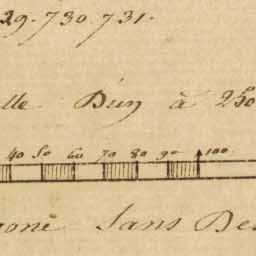 29. 730. 731.
elle D'un à 250
40 50 60 70 80 90 100
gone Sans De